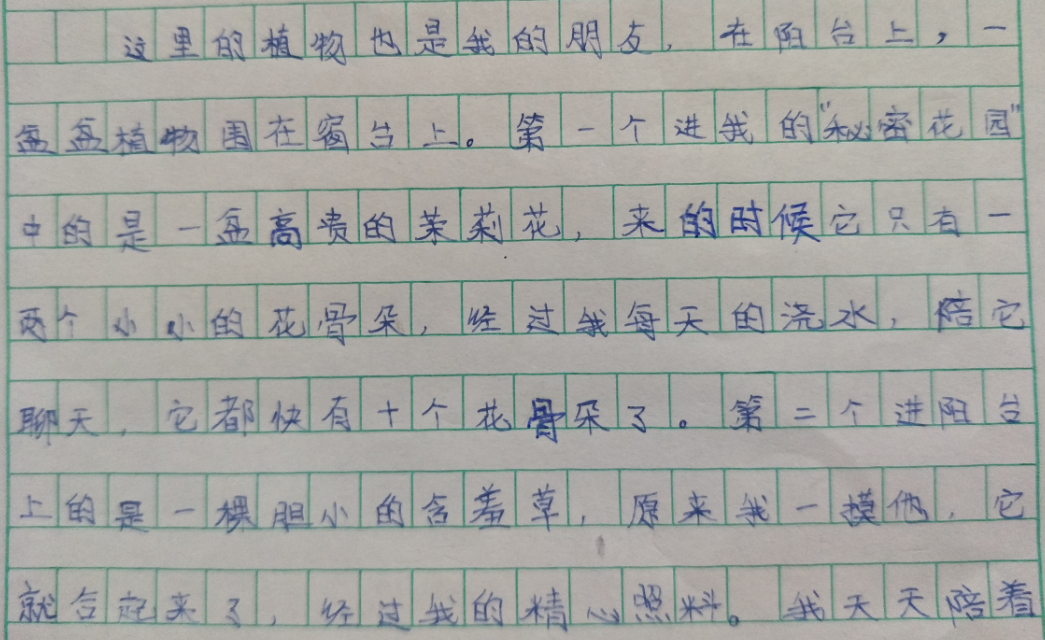 这里的植物也是我的朋友，在阳台上，一
盆盆植物围在窗台上。第一个进我的"秘密花园"
中的是一盆高贵的茉莉花，来的时候它只有一
两个小小的花骨朵，经过我每天的浇水，陪它
聊天，它都快有十个花骨朵了。第二个进阳台
上的是一棵胆小的含羞草，原来我一摸他，它
就合起来了，经过我的精心照料。我天天陪着